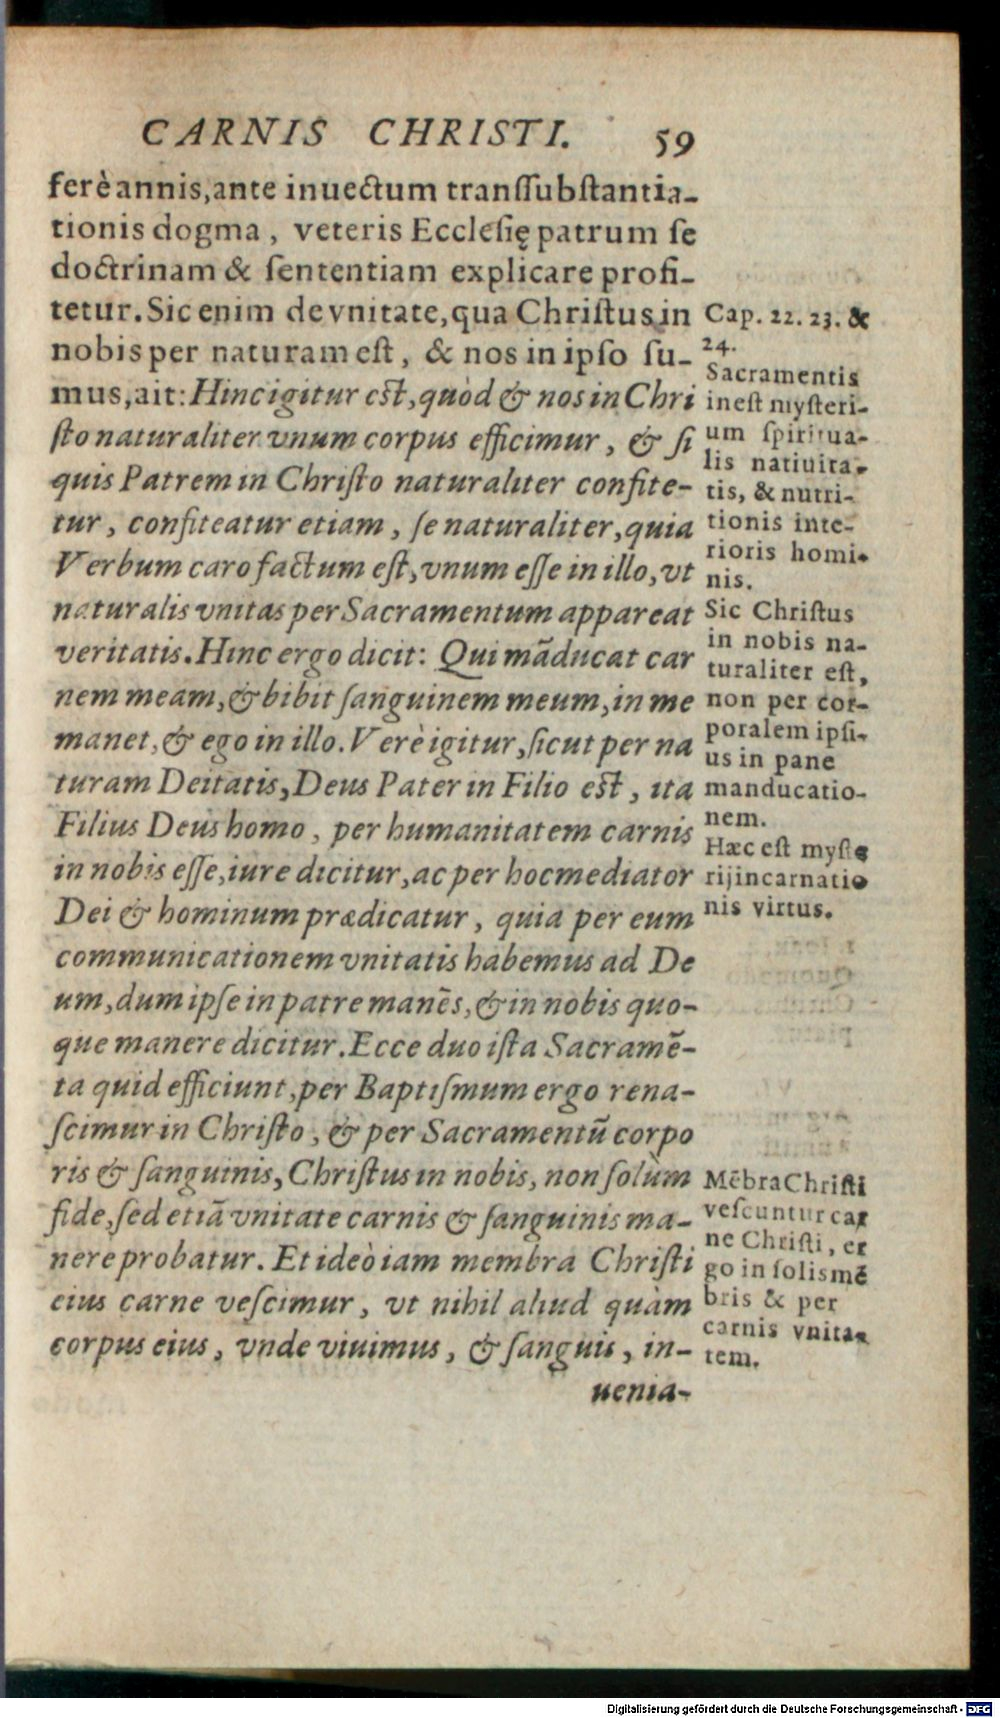 CARNIS CHRISTI. 59
ferè annis, ante inuectum transſubſtantia-
tionis dogma, veteris Eccleſię patrum ſe
doctrinam & ſententiam explicare profi-
tetur. Sic enim de vnitate, qua Chriſtus in
nobis per naturam eſt, & nos in ipſo ſu-
mus, ait: Hinc igitur eſt, quòd & nos in Chri
ſto naturaliter vnum corpus efficimur, & ſi
quis Patrem in Chriſto naturaliter confite-
tur, confiteatur etiam, ſe naturaliter, quia
Verbum caro factum eſt, vnum eſſe in illo, vt
naturalis vnitas per Sacramentum appareat
veritatis. Hinc ergo dicit: Qui mãducat car
nem meam, & bibit ſanguinem meum, in me
manet, & ego in illo. Verè igitur, ſicut per na
turam Deitatis, Deus Pater in Filio eſt, ita
Filius Deus homo, per humanitatem carnis
in nobis eſſe, iure dicitur, ac per hoc mediator
Dei & hominum prædicatur, quia per eum
communicationem vnitatis habemus ad De
um, dum ipſe in patre manẽs, & in nobis quo-
que manere dicitur. Ecce duo iſta Sacramẽ-
ta quid efficiunt, per Baptiſmum ergo rena-
ſcimur in Chriſto, & per Sacramentũ corpo
ris & ſanguinis, Chriſtus in nobis, non ſolùm
fide, ſed etiã vnitate carnis & ſanguinis ma-
nere probatur. Et ideò iam membra Chriſti
eius carne veſcimur, vt nihil aliud quàm
corpus eius, vnde viuimus, & ſanguis, in-
uenia-
Cap. 22. 23. &
24.
Sacramentis
ineſt myſteri-
um ſpiritua-
lis natiuita-
tis, & nutri-
tionis inte-
rioris homi-
nis.
Sic Chriſtus
in nobis na-
turaliter eſt,
non per cor-
poralem ipſi-
us in pane
manducatio-
nem.
Hæc eſt myſte
rij incarnatio
nis virtus.
Mẽbra Chriſti
veſcuntur car
ne Chriſti, er
go in ſolis mẽ
bris & per
carnis vnita-
tem.
Digitalisierung gefördert durch die Deutsche Forschungsgemeinschaft - DFG